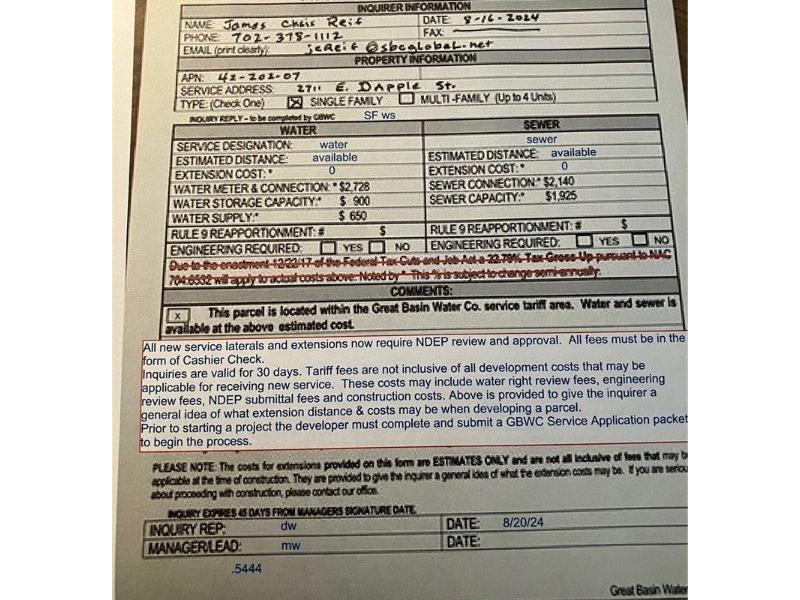 INQUIRER INFORMATION
NAME: James Chris Reif DATE: 8-16-2024
PHONE: 702-378-1112 FAX:
EMAIL (print clearly): jcReif@sbcglobal.net
PROPERTY INFORMATION
APN: 42-202-07
SERVICE ADDRESS: 2711 E. DAPPLE St.
TYPE: (Check One) ☒ SINGLE FAMILY ☐ MULTI-FAMILY (Up to 4 Units)
INQUIRY REPLY - to be completed by GBWC SF ws
WATER SEWER
SERVICE DESIGNATION: water sewer
ESTIMATED DISTANCE: available ESTIMATED DISTANCE: available
EXTENSION COST: * 0 EXTENSION COST: * 0
WATER METER & CONNECTION: * $2,728 SEWER CONNECTION:* $2,140
WATER STORAGE CAPACITY:* $ 900 SEWER CAPACITY:* $1,925
WATER SUPPLY:* $ 650
RULE 9 REAPPORTIONMENT: # $ RULE 9 REAPPORTIONMENT: # $
ENGINEERING REQUIRED: ☐ YES ☐ NO ENGINEERING REQUIRED: ☐ YES ☐ NO
Due to the enactment 12/22/17 of the Federal Tax Cuts and Job Act a 22.79% Tax Gross-Up pursuant to NAC
704.6532 will apply to actual costs above. Noted by * This % is subject to change semi-annually.
COMMENTS:
x This parcel is located within the Great Basin Water Co. service tariff area. Water and sewer is
available at the above estimated cost.
All new service laterals and extensions now require NDEP review and approval. All fees must be in the
form of Cashier Check.
Inquiries are valid for 30 days. Tariff fees are not inclusive of all development costs that may be
applicable for receiving new service. These costs may include water right review fees, engineering
review fees, NDEP submittal fees and construction costs. Above is provided to give the inquirer a
general idea of what extension distance & costs may be when developing a parcel.
Prior to starting a project the developer must complete and submit a GBWC Service Application packet
to begin the process.
PLEASE NOTE: The costs for extensions provided on this form are ESTIMATES ONLY and are not all inclusive of fees that may b
applicable at the time of construction. They are provided to give the inquirer a general idea of what the extension costs may be. If you are seriou
about proceeding with construction, please contact our office.
INQUIRY EXPIRES 45 DAYS FROM MANAGERS SIGNATURE DATE.
INQUIRY REP: dw DATE: 8/20/24
MANAGER/LEAD: mw DATE:
.5444
Great Basin Water